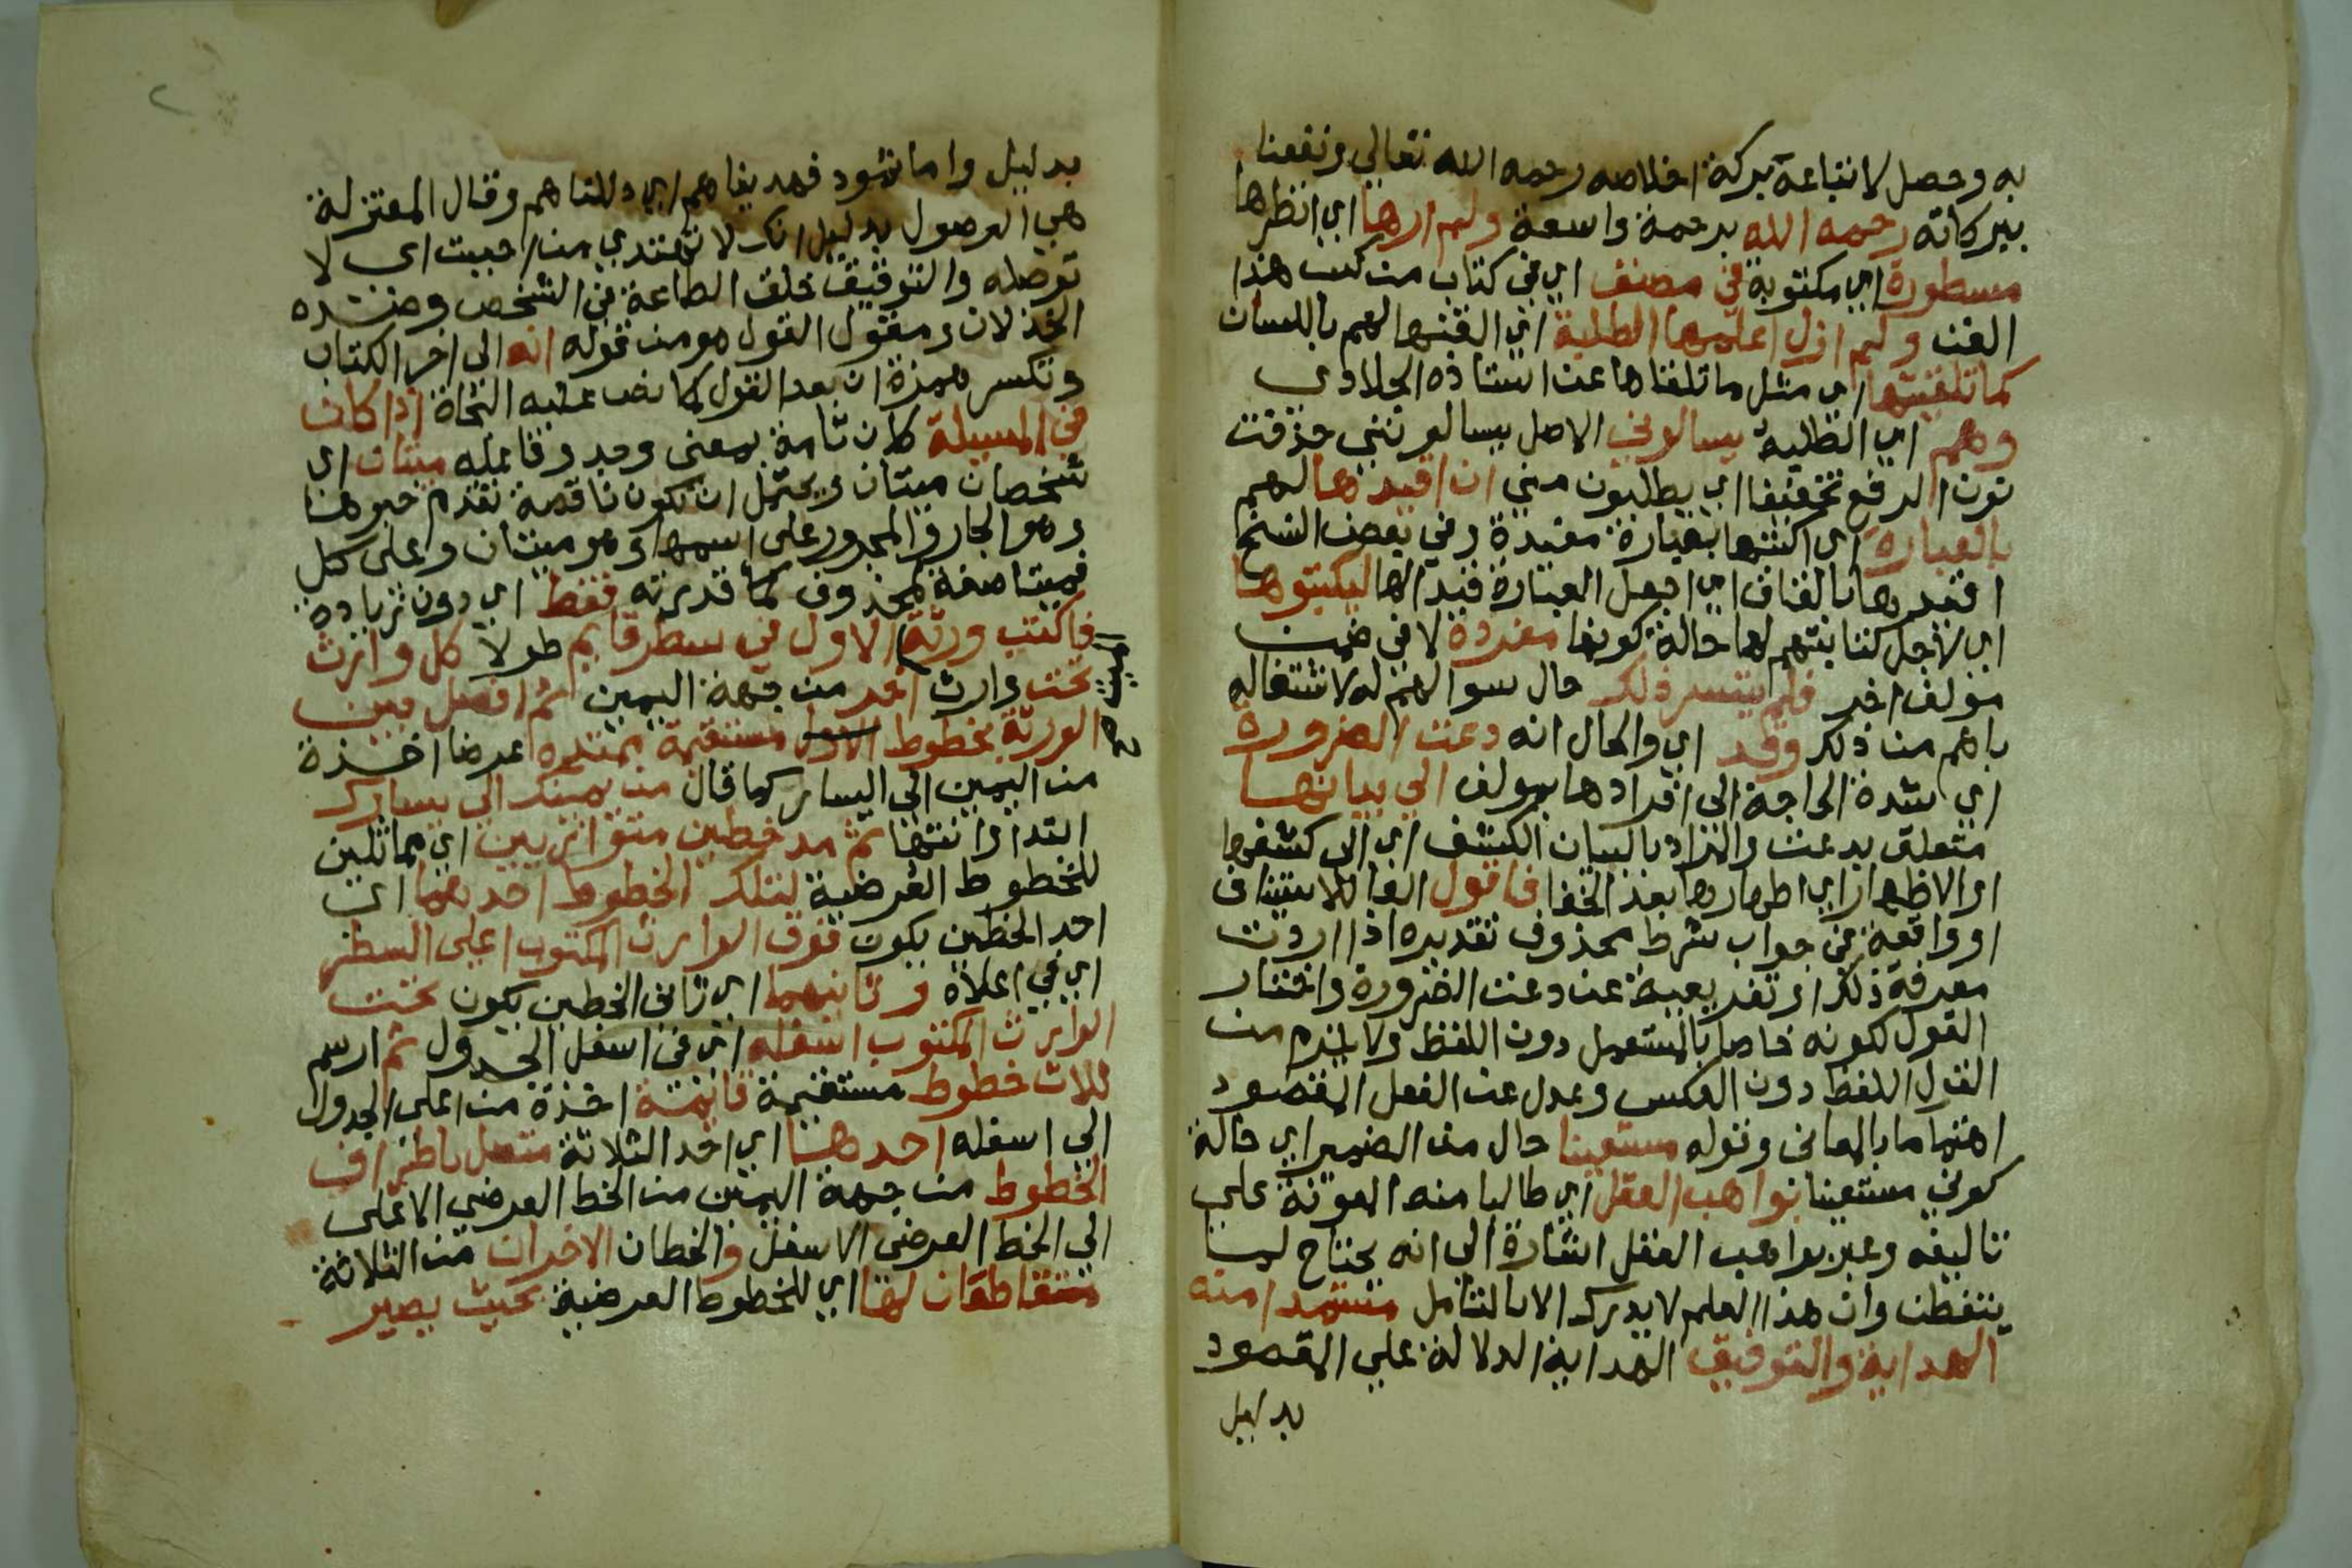 به وحصل لاتباعه بركة اخلاصه رحمه الله تعالي ونفعنا
ببركاته رحمه الله برحمة واسعة ولم ارها اي انظرها
مسطورة اي مكتوبة في مصنف اي في كتاب من كتب هذا
الفن ولم ازل اعلمها الطلبة اي القنها لهم باللسان
كما تلقيتها اي مثل ما تلقناها عن استاذه الجلادي
وهم اي الطلبة يسالوني الاصل يسالونني حذفت
نون الرفع تخفيفا اي يطلبون مني ان اقيدها لهم
بالعبارة اي اكتبها بعبارة مقيدة وفي بعض النسخ
افيدها بالفاف اي اجعل العبارة قيدا لها ليكتبوها
اي لاجل كتابتهم لها حالة كونها مفردة لا في ضمن
مولف اخر فلم يتيسر ذلك حال سوالهم له لاشتغاله
باهم من ذلك وقد اي والحال انه دعت الضرورة
اي شدة الحاجة الى افرادها بمولف الي بيانها
متعلق بدعت والمراد بالبيان الكشف اي الى كشفها
او الاظهار اي اظهارها بعد الخفا فاقول الفا للاستيناف
او واقعة في جواب شرط محذوف تقديره اذا اردت
معرفة ذلك او تفريعية عن دعت الضرورة واختار
القول لكونه خاصا بالمستعمل دون اللفظ ولا يلزم من
القول اللفظ دون العكس وعدل عن الفعل المقصود
اهتماما بالمعاني وقوله مستعينا حال من الضمير اي حالة
كوني مستعينا بواهب العقل اي طالبا منه المعونة علي
تاليفه وعبر بواهب العقل اشارة الى انه يحتاج لمن
يتفطن وان هذا العلم لا يدرك الا بالتامل مستمدا منه
الهداية والتوفيق الهداية الدلالة علي المقصود
بدليل
بدليل واما ثمود فهديناهم اي دللناهم وقال المعتزلة
هي الوصول بدليل انك لا تهتدي من احببت اي لا
توصله والتوفيق خلق الطاعة في الشخص وضده
الخذلان ومقول القول هو من قوله انه الى اخر الكتاب
وتكسر همزة ان بعد القول كما نص عليه النحاة اذا كان
في المسيلة كان تامة بمعنى وجد وفاعله ميتان اي
شخصان ميتان ويحتمل ان تكون ناقصة تقدم خبرها
وهو الجار والمجرور على اسمها وهو ميتان وعلى كل
فميتا صفة لمحذوف كما قدرته فقط اي دون زيادة
فاكتب ورثة الاول في سطر قايم طولا كل وارث
تحت وارث اخر من جهة اليمين ثم افصل بين
الورثة بخطوط الاول مستقيمة ممتده عرضا اخذة
من اليمين الي اليسار كما قال من يمينك الي يسارك
ابتدا وانتها ثم مد خطين متوازيين اي مماثلين
للخطوط العرضية لتلك الخطوط احدهما اي
احد الخطين يكون فوق الوارث المكتوب اعلى السطر
اي في اعلاه وثانيهما اي ثاني الخطين يكون تحت
الوارث المكتوب اسفله اي في اسفل الجدول ثم ارسم
ثلاث خطوط مستقيمة قايمة اخذة من اعلى الجدول
الي اسفله احدها اي احد الثلاثة متصل باطراف
الخطوط من جهة اليمين من الخط العرضي الاعلى
الي الخط العرضي الاسفل والخطان الاخران من الثلاثة
متقاطعان لها اي للخطوط العرضية بحيث يصير